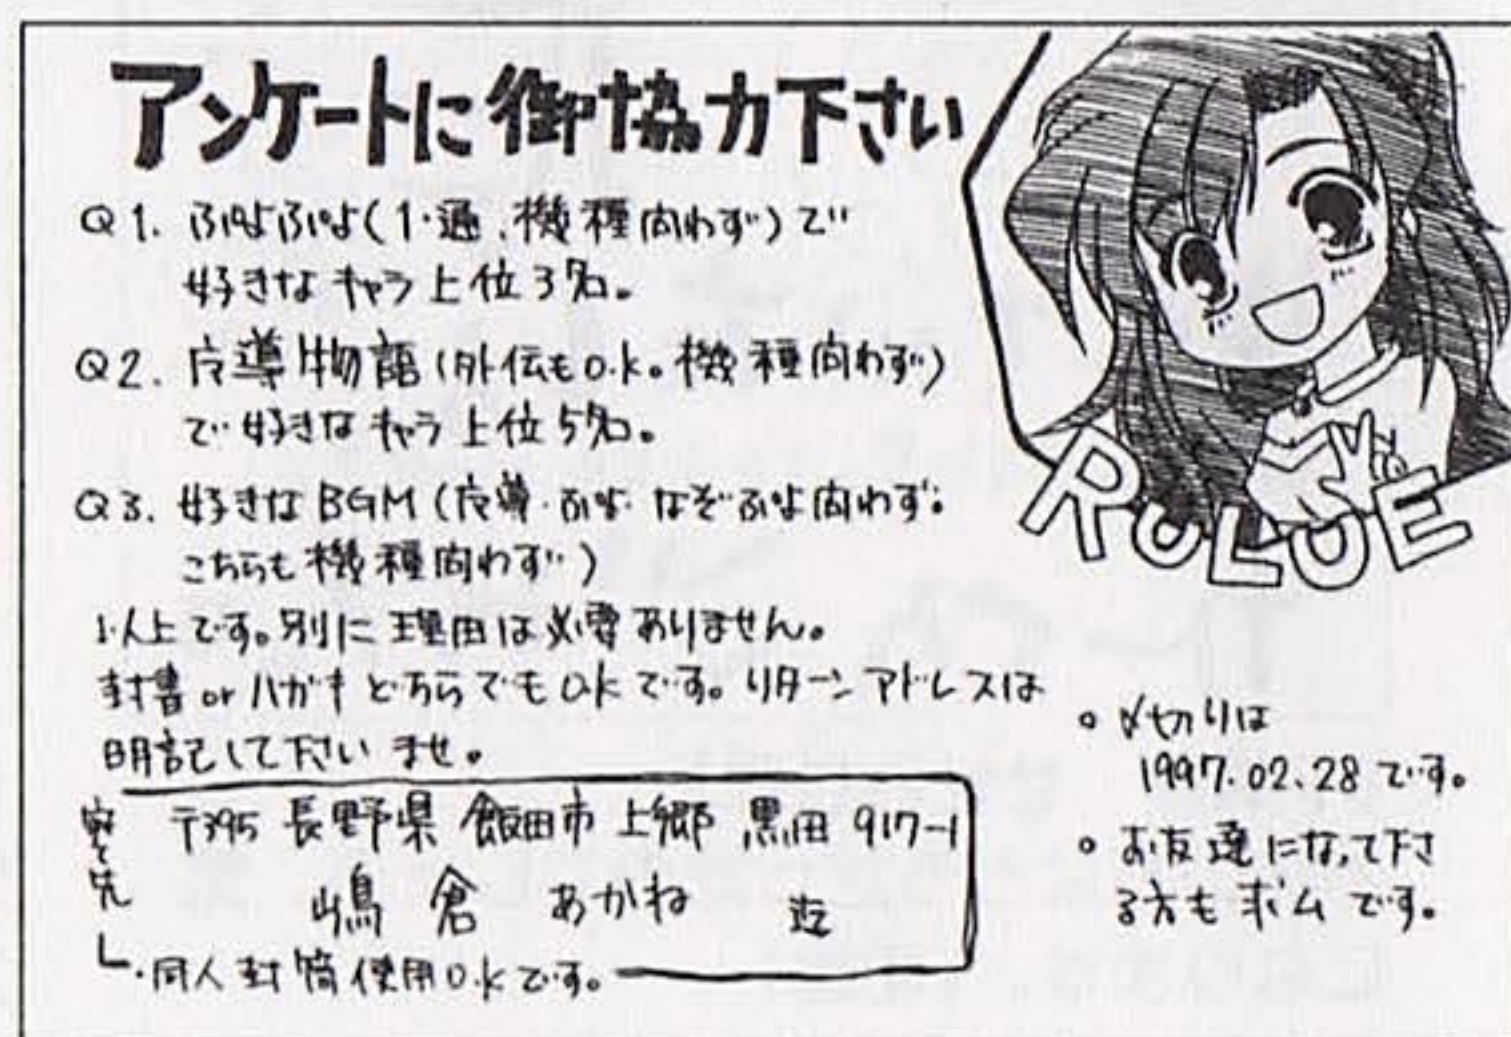 アンケートに御協力下さい
Q1. ぷよぷよ(1・通、機種問わず)で
好きなキャラ上位3名。
Q2. 魔導物語(外伝もO.k。機種問わず)
で好きなキャラ上位5名。
Q3. 好きなBGM(魔導・ぷよ・なぞぷよ問わず。
こちらも機種問わず)
以上です。別に理由は必要ありません。
封書orハガキどちらでもO.kです。リターンアドレスは
明記して下さいませ。
宛て先
〒395 長野県 飯田市 上郷 黒田 917-1
嶋倉 あかね 迄
・同人封筒使用O.kです。
RULUE
○〆切りは
1997.02.28です。
○お友達になって下さ
る方も求ムです。